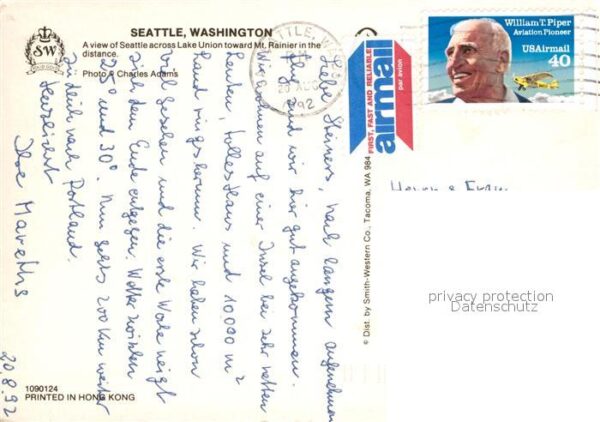 SW
SEATTLE, WASHINGTON
A view of Seattle across Lake Union toward Mt. Rainier in the
distance.
Photo © Charles Adams
SEATTLE, WA
20 AUG
1992
FIRST, FAST AND RELIABLE
airmail
par avion
William T. Piper
Aviation Pioneer
USAirmail
40
Liebe Steiners, nach langem angenehmen
Flug sind wir hier gut angekommen.
Wir wohnen auf einer Insel bei sehr netten
Leuten, tolles Haus und 10.000 m²
Land rings herum. Wir haben schon
viel gesehen und die erste Woche neigt
sich dem Ende entgegen. Wetter zwischen
28° und 30°. Nun gehts 200 km weiter
südlich nach Portland.
Herzlichst
Ihre
20.8.92
© Dist. by Smith-Western Co., Tacoma, WA 984
Herrn & Frau
privacy protection
Datenschutz
1090124
PRINTED IN HONG KONG